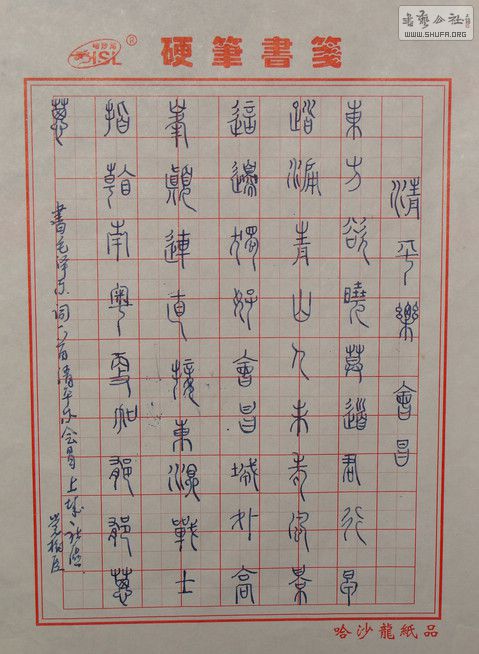 書藝公社
WWW.SHUFA.ORG
哈沙龍
HSL®
硬筆書箋
清平樂 會昌
東方欲曉莫道君行早
踏遍青山人未老風景
這邊獨好會昌城外高
峯顛連直接東溟戰士
指看南粵更加鬱鬱葱
葱
書毛泽东词一首清平乐会昌
哈沙龍紙品